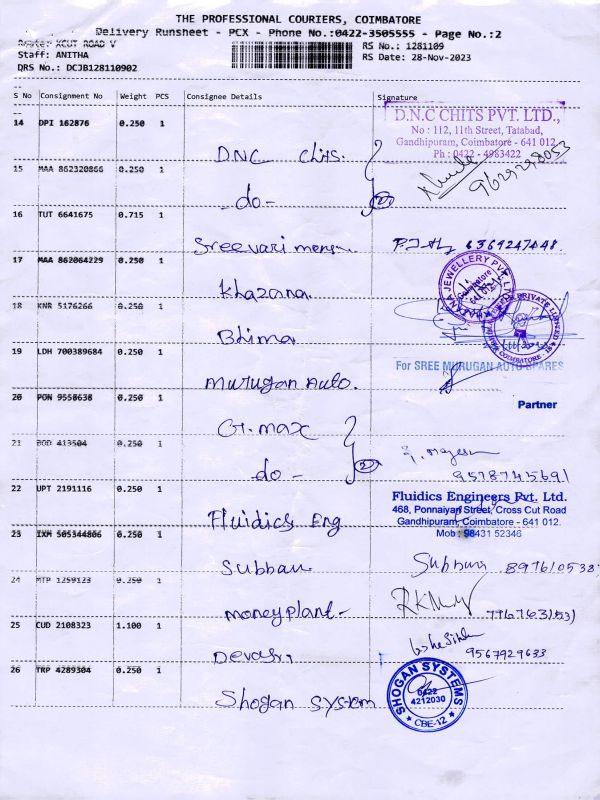 THE PROFESSIONAL COURIERS, COIMBATORE
Delivery Runsheet - PCX - Phone No.:0422-3505555 - Page No.:2
Route: XCUT ROAD V
RS No.: 1281109
Staff: ANITHA
RS Date: 28-Nov-2023
DRS No.: DCJB128110902
S No Consignment No Weight PCS Consignee Details Signature
D.N.C CHITS PVT. LTD.,
14 DPI 162876 0.250 1
No : 112, 11th Street, Tatabad,
Gandhipuram, Coimbatore - 641 012
D.N.C Chits.
Ph : 0422 - 4983422
15 MAA 862320866 0.250 1
9629298053
-do-
16 TUT 6641675 0.715 1
Sreevari mens
6369247048
17 MAA 862064229 0.250 1
KHAZANA JEWELLERY PVT. LTD.
Coimbatore
Khazana
18 KNR 5176266 0.250 1
PRIVATE LIMITED
COIMBATORE
Bhima
19 LDH 700389684 0.250 1
For SREE MURUGAN AUTO SPARES
Murugan Auto.
20 PON 9558638 0.250 1
Partner
G.max
21 BOD 413504 0.250 1
do - (2)
9578745691
22 UPT 2191116 0.250 1
Fluidics Engineers Pvt. Ltd.
468, Ponnaiyan Street, Cross Cut Road
Gandhipuram, Coimbatore - 641 012.
Fluidics Eng
Mob : 98431 52346
23 IXM 505344806 0.250 1
Subbau
Subbau
24 MTP 1259123 0.250 1
moneyplant-
25 CUD 2108323 1.100 1
9567929633
26 TRP 4289304 0.250 1
SHOGAN SYSTEMS
0422
4212030
CBE-12
Shogan System